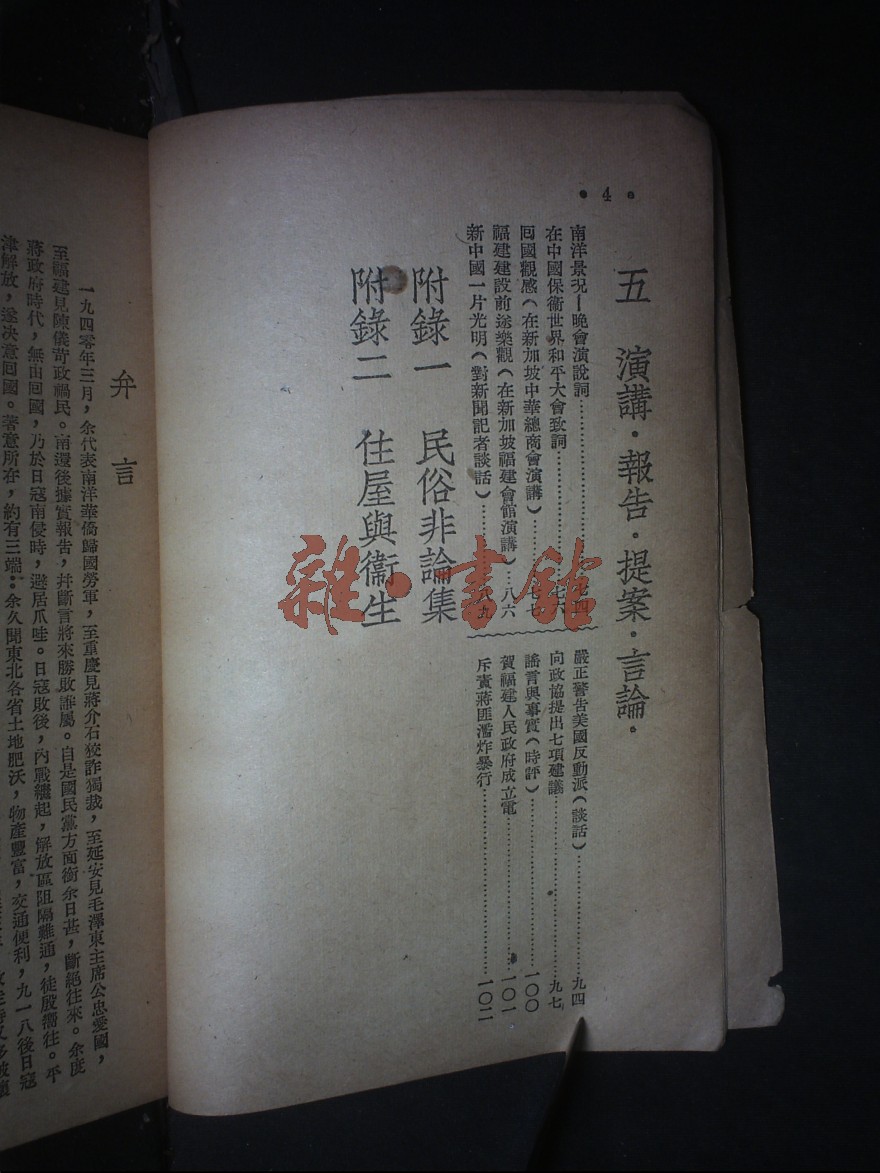 • 4 •
五　演講・報告・提案・言論・
南洋景况—晚會演說詞……七四
在中國保衛世界和平大會致詞……七六
回國觀感（在新加坡中華總商會演講）……七七
福建建設前途樂觀（在新加坡福建會館演講）…八六
新中國一片光明（對新聞記者談話）……八九
嚴正警告美國反動派（談話）……九四
向政協提出七項建議……九七
謠言與事實（時評）……一〇〇
賀福建人民政府成立電……一〇一
斥責蔣匪濫炸暴行……一〇二
附錄一　民俗非論集
附錄二　住屋與衞生
雜・書館
弁言
一九四零年三月，余代表南洋華僑歸國勞軍，至重慶見蔣介石狡詐獨裁，至延安見毛澤東主席公忠愛國，
至福建見陳儀苛政禍民。南還後據實報告，并斷言將來勝敗誰屬。自是國民黨方面銜余日甚，斷絕往來。余度
蔣政府時代，無由回國，乃於日寇南侵時，避居爪哇。日寇敗後，內戰繼起，解放區阻隔難通，徒殷嚮往。平
津解放，遂决意回國。著意所在，約有三端：余久聞東北各省土地肥沃，物產豐富，交通便利，九一八後日寇